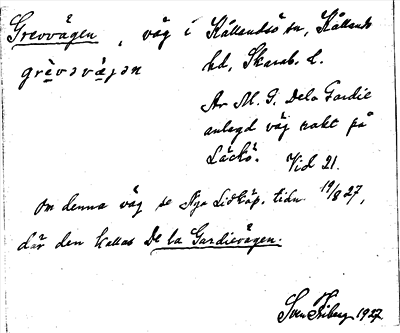 Grevvägen, väg i Kållandsö sn, Kållands
grèvəvä̀ɡən hd, Skarab. l.
Av M. G. De la Gardie
anlagd väg rakt på
Läckö. Vid 21.
Om denna väg se Nya Lidköp. tidn 19/8 27,
där den kallas De la Gardievägen.
Sven Friberg 1927